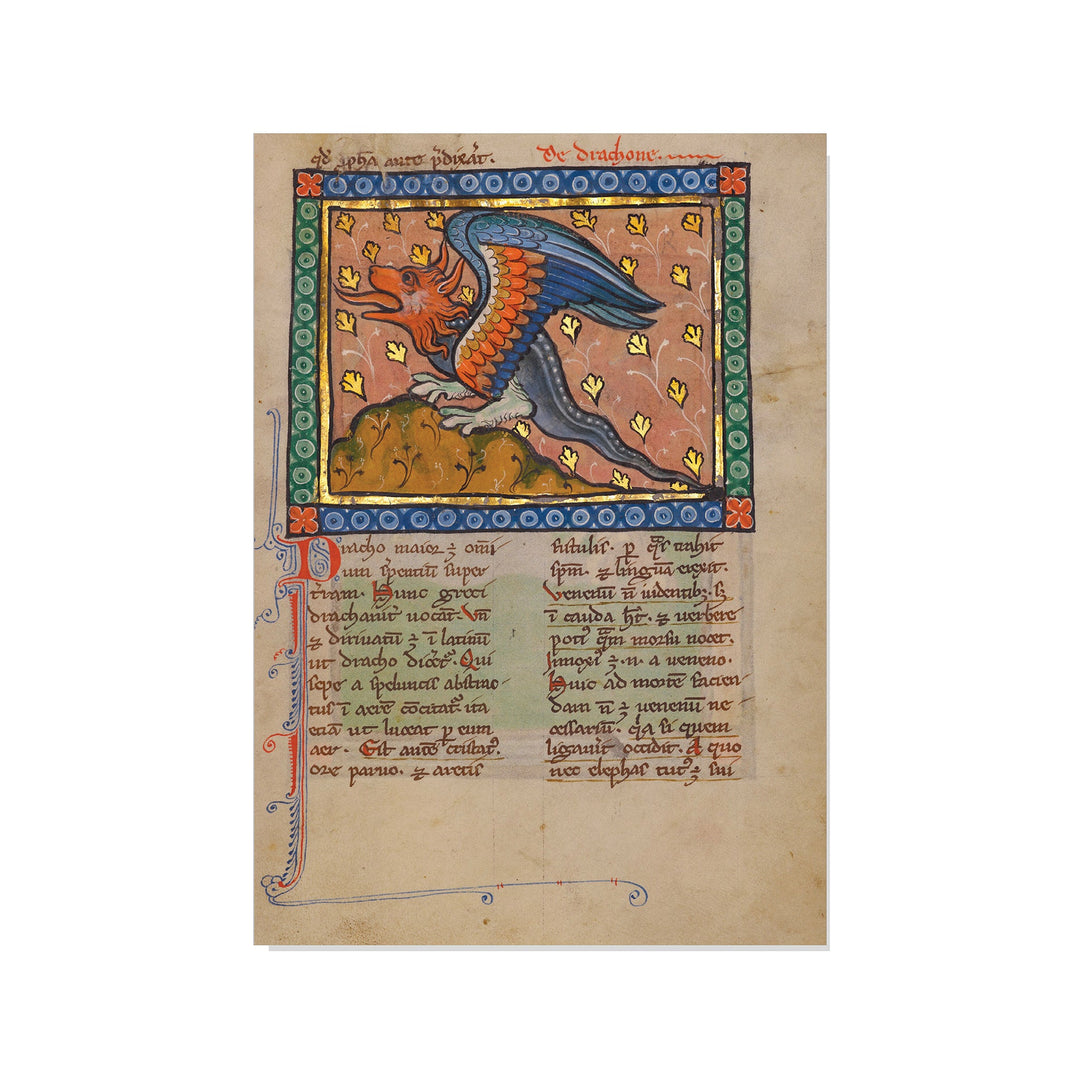 qd ꝓpha ante p̄dixāt.
De drachone.
Dracho maior ē omī
um s̄pentiū super
t̄ram. Hunc greci
drachanīt uocāt. Vn̄
⁊ diriuatū ē ī latinū
ut dracho dicēt. Qui
sepe a speluncis abstrac
tus ī aerē cōcitat᷑ ita
etiā ut luceat ꝑ eum
aer. Est autē cristatꝰ.
ore paruo. ⁊ artis
fistulis. ꝑ qͣs trahit
spm̄. ⁊ linguā erexit.
Venenū n̄ uidentibꝫ. sꝫ
ī cauda ht̄. ⁊ uerbere
potiꝰ qͣm morsu nocet.
Innoxiꝰ ē .n. a ueneno.
Huic ad mortē facien
dam n̄ ē uenenū ne
cessariū. qͥa si quem
ligauīt occidit. A quo
nec elephas tutꝰ ē sui